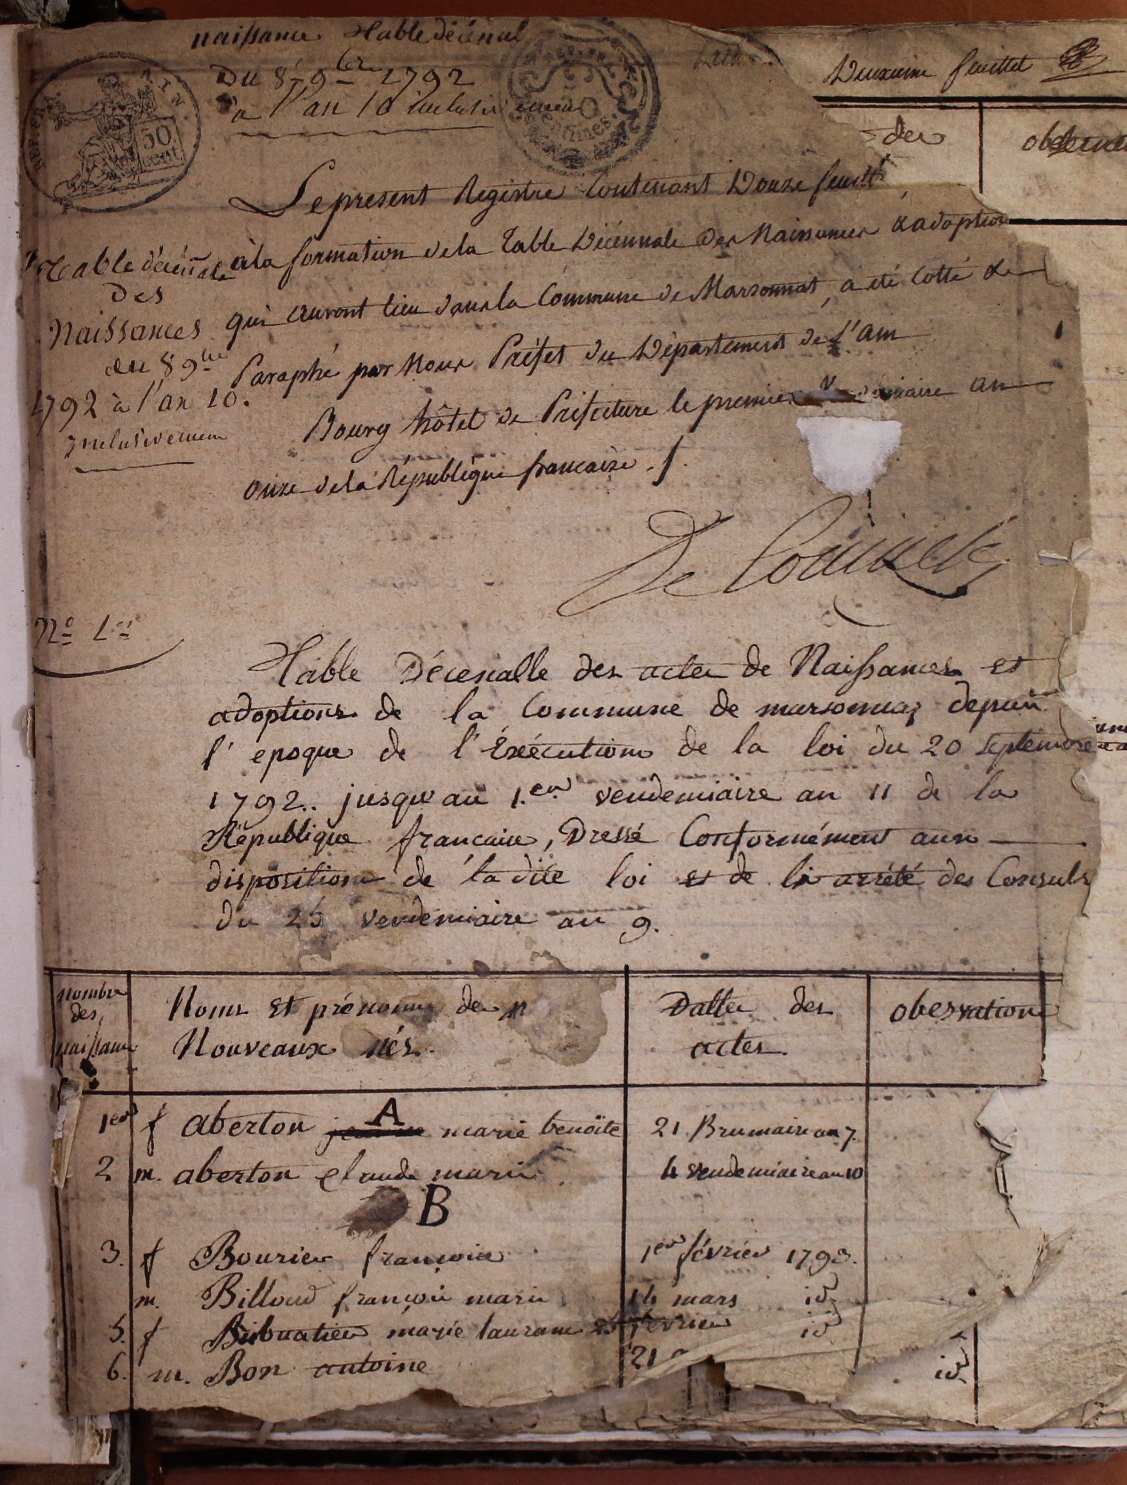 naissance Table décénal
Du 8 9bre 1792
a l'an 10 inclusivement
50
cent.
Centimes
Deuxieme feuillet
des
Le present Registre Contenant Douze feuillets,
à la formation de la Table Décennale des Naissances & adoptions
qui auront lieu dans la Commune de Marsonnat, a été Cotté &
Paraphé par Nous Préfet du Département de l'ain
Bourg hôtel de Préfecture le premier Vendémiaire an
onze de la République francaise.
Table décénale
Des
Naissances
du 8 9bre
1792 à l'an 10.
Inclusivement
No 1er
Table Décenalle des actes de Naissances et
adoptions de la Commune de marsonnaz depuis
l'epoque de l'Exécution de la loi du 20 septembre
1792.. jusqu'au 1.er vendemiaire an 11 de la
République francaise, Dressé Conformément aux
disposition de la dite loi et de l'arrété des Consuls
du 25 vendemiaire an 9.
nombre
des
naissance
Noms et prénoms des
Nouveaux nés.
Datte des
actes.
obesrvation
A
1er f aberton marie benoite 21 Brumaire an 7.
2 m. aberton claude marie 4 vendemiaire an 10
B
3. f Bourier francoise 1er février 1793.
m. Billoud françois marie 14 mars id
5. f marie laurance 25 fevrier id
6. m. Bon antoine 21 id